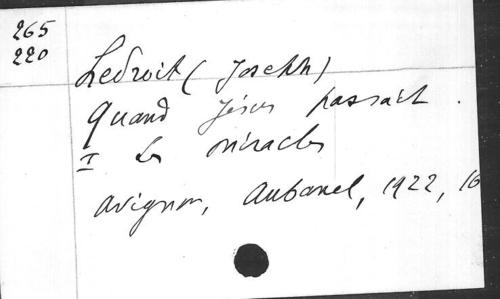 265
220
Ledroit (Joseph)
Quand Jésus passait.
I Les miracles
Avignon, Aubanel, 1922, 16